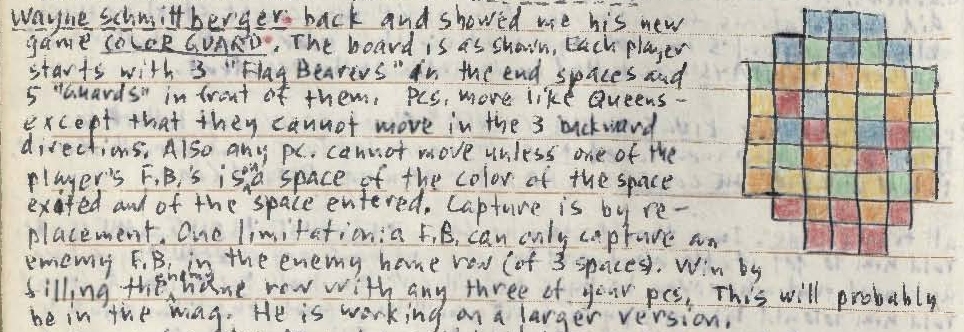 Wayne Schmittberger. back and showed me his new
game COLOR GUARD. The board is as shown. Each player
starts with 3 "Flag Bearers" in the end spaces and
5 "Guards" in front of them. Pcs. move like Queens -
except that they cannot move in the 3 backward
directions. Also any pc. cannot move unless one of the
player's F.B.'s is on a space of the color of the space
exited and of the space entered. Capture is by re-
placement. One limitation: a F.B. can only capture an
ememy F.B. in the enemy home row (of 3 spaces). Win by
filling the enemy home row with any three of your pcs. This will probably
be in the mag. He is working on a larger version.